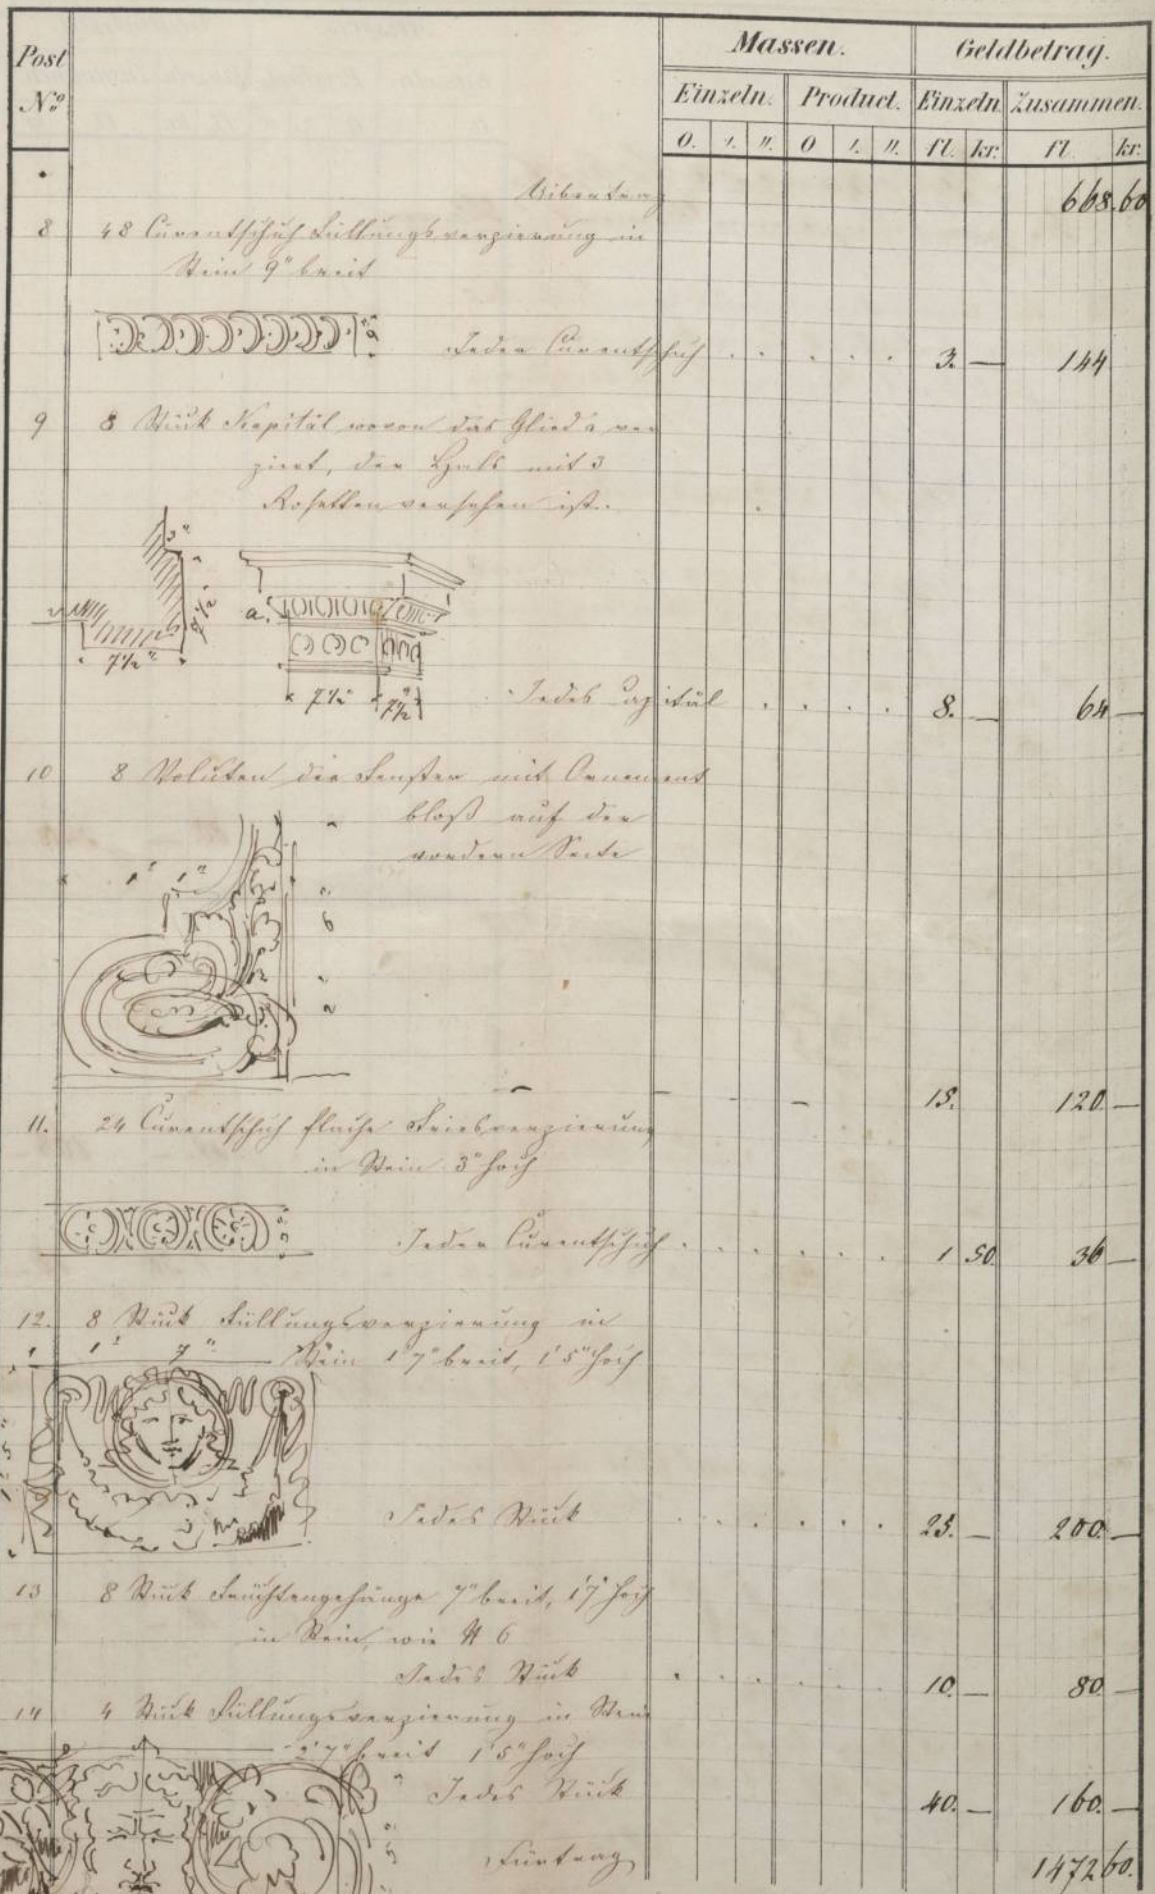 Post
No
Massen.
Geldbetrag.
Einzeln. Product. Einzeln Zusammen.
0. ′. ″. 0 ′. ″. fl. kr. fl. kr.
Uibertrag 668.60
8 48 Curentschuh Füllungsverzierung in
Stein 9" breit
9"
Jeder Curentschuh 3. — 144
9 8 Stük Kapitäl wovon das Glied a ver
ziert, der Hals mit 3
Rosetten versehen ist.
3"
a.
7½"
7½"
7½" 7½"
Jedes Capitäl 8. — 64 —
10 8 Voluten der Fenster mit Ornament
bloß auf der
vordern Seite
1' 1"
6
2
15. 120. —
11. 24 Curentschuh flache Friesverzierung
in Stein 3" hoch
3"
Jeder Curentschuh 1 50 36 —
12. 8 Stük Füllungsverzierung in
Stein 1'7" breit, 1'5" hoch
1' 7"
1' 5"
Jedes Stük 25. — 200. —
13 8 Stük Früchtengehänge 7" breit, 1'7" hoch
in Stein, wie N 6
Jedes Stük 10. — 80. —
14 4 Stük Füllungsverzierung in Stein
2'7" breit 1'5" hoch
Jedes Stük 40. — 160. —
Fürtrag 1472 60.